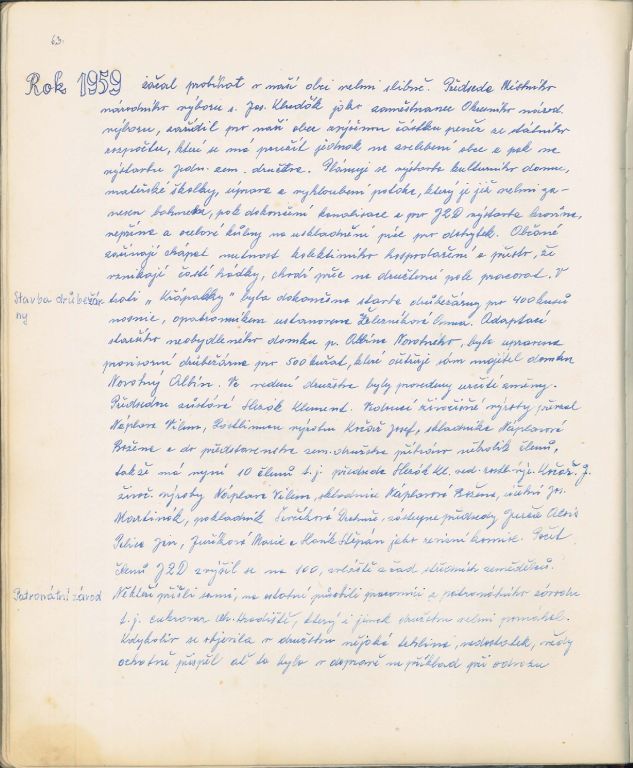 63.
Rok 1959 začal probíhat v naší obci velmi slibně. Předseda Místního
národního výboru s. Jos. Chudák jako zaměstnanec Okresního národ.
výboru, zařídil pro naši obec zvýšenou částku peněz ze státního
rozpočtu, které se má použít jednak na zvelebení obce a pak na
výstavbu Jedn. zem. družstva. Plánuje se výstavba kulturního domu,
mateřské školky, úprava a vyhloubení potoka, který je již velmi za-
nesen bahnem, pak dokončení kanalisace a pro JZD výstavba kravína,
vepřína a ocelové kůlny na uskladnění píce pro dobytek. Občané
začínají chápat nutnost kolektivního hospodaření a přesto, že
vznikají časté hádky, chodí přece na družstevní pole pracovat. V
trati „Křápalky" byla dokončena stavba drůbežárny pro 400 kusů
nosnic, opatrovníkem ustanovena Železníková Anna. Adaptací
staršího neobydleného domku p. Albína Novotného, byla upravena
provisorní drůbežárna pro 500 kuřat, které ošetřuje sám majitel domku
Novotný Albín. Ve vedení družstva byly provedeny určité změny.
Předsedou zůstává Slezák Klement. Vedoucí živočišné výroby převzal
Náplava Vilém, Rostlinnou výrobu Krčář Josef, skladnice Náplavová
Božena a do představenstva zem. družstva přibráno několik členů,
takže má nyní 10 členů t.j. předseda Slezák Kl. ved. rostl. výr. Krčář J.
živoč. výroby Náplava Vilém, skladnice Náplavová Božena, účetní Jos.
Martinák, pokladník Jurčíková Drahuše, zástupce předsedy Jurča Alois
Polina Jan, Juříková Marie a Horák Štěpán jako revisní komise. Počet
členů JZD zvýšil se na 100, zvláště z řad středních zemědělců.
Někteří přišli sami, na ostatní působili pracovníci z patronátního závodu
t.j. cukrovar Uh. Hradiště, který i jinak družstvu velmi pomáhal.
Kdykoliv se objevila v družstvu nějaká trhlina, nedostatek, vždy
ochotně přispěl ať to bylo v dopravě na příklad při odvozu
Stavba drůbežár-
ny
Patronátní závod